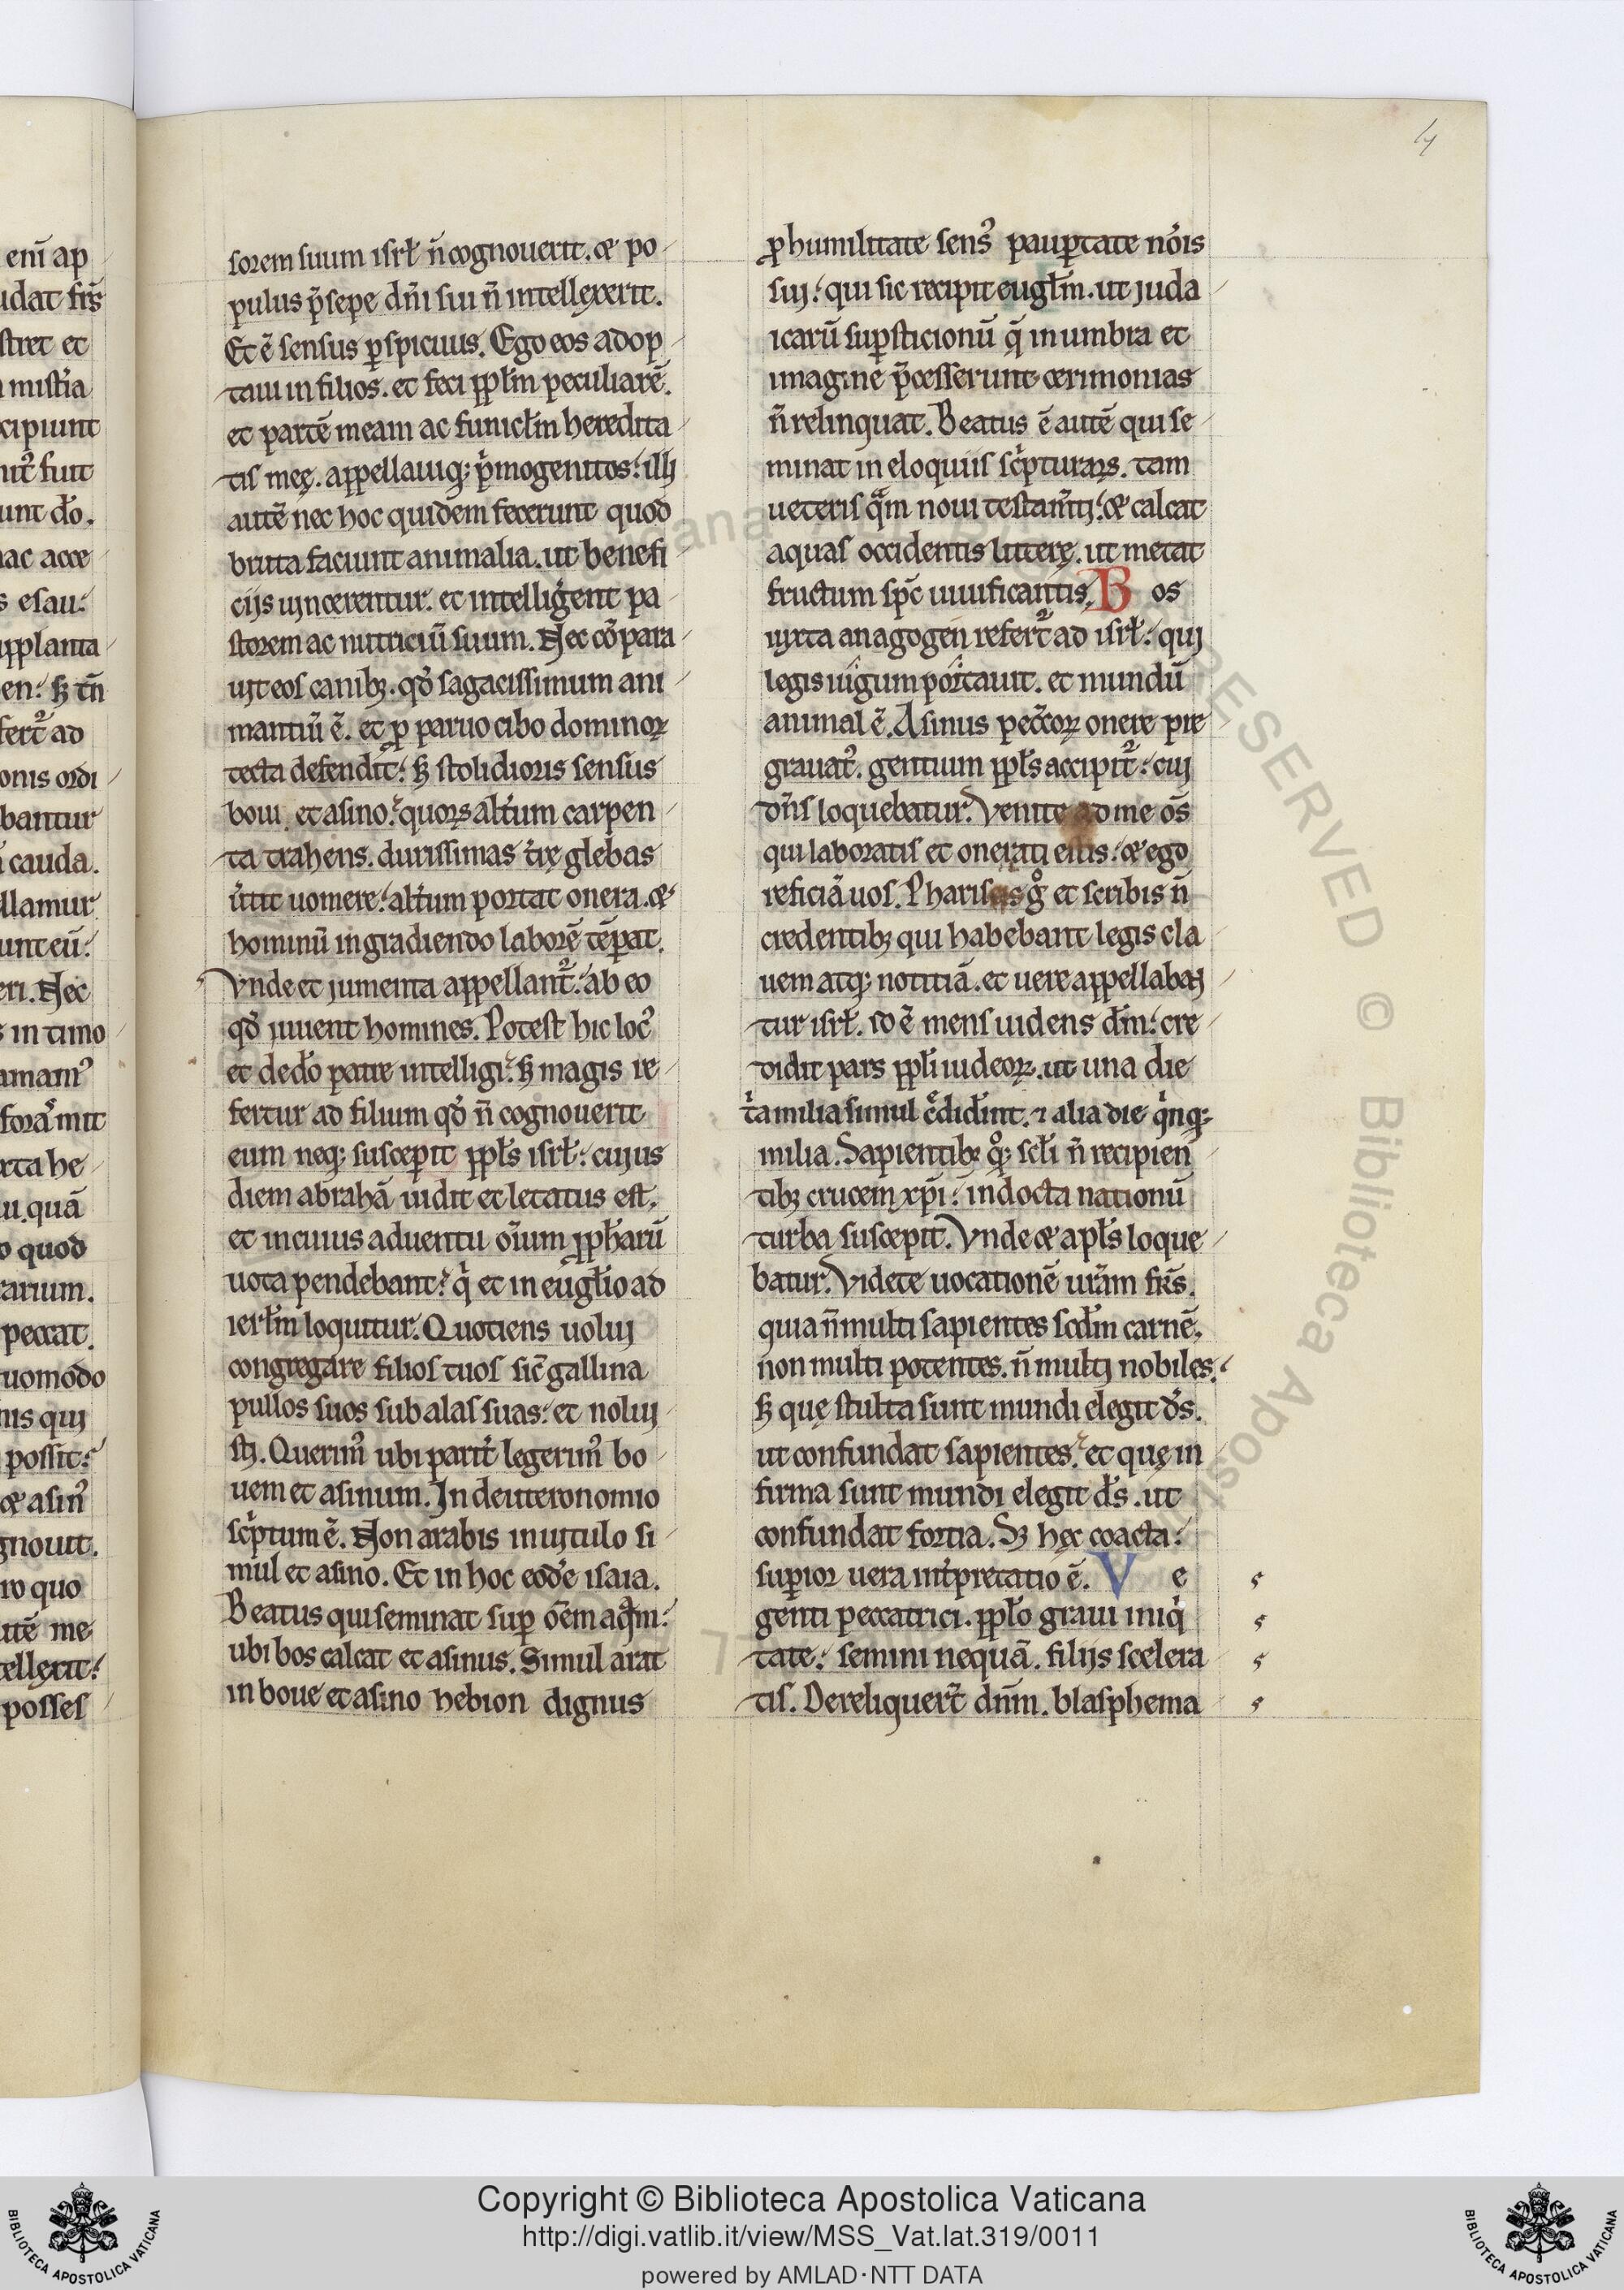 enī ap
udat frs̄
stret et
mist̄ia
cipiunt
nit᷒ fuit
unt do̅.
ac acce
s esau:
upplanta
en: sꝫ tn̄
fert᷒ ad
onis ordi
bantur
cauda.
llamur
unt eū:
eri. Nec
s in timo
amam᷒
fora mit
xta he
u. quā
o quod
rarium.
peccat.
uomodo
nis quı
possit:
⁊ asin᷒
gnouit.
ro quo
utē me
tellexit:
posses
sorem suum isrł n̄ cognouerit. & po
pulus p̄sepe dn̄i sui n̄ intellexerit.
Et ē sensus ꝑspicuus. Ego eos adop
taui in filios. et feci ppłm peculiarē.
et partē meam ac funicłm heredita
tis meę. appellauiq; p̍mogenitos: illı
autē nec hoc quidem fecerunt quod
bruta faciunt animalia. ut benefi
cijs uincerentur. et intelligerent pa
storem ac nutriciū suum. Nec cōpara
uit eos canibꝫ. qđ sagacissimum ani
mantiū ē. et ꝓ paruo cibo dominoꝝ
tecta defendit: sꝫ stolidioris sensus
boui. et asino: quoꝝ alt̄um carpen
ta trahens. durissimas t̄rę glebas
u̅tit uomere: alt̄um portat onera. &
hominū in gradiendo laborē tēꝑat.
Vnde et iumenta appellant᷒: ab eo
qđ iuuent homines. Potest hic loc᷒
et de do̅ patre intelligi: sꝫ magis re
fertur ad filium qđ n̄ cognouerit
eum neq; susceperit ppłs isrł: cuius
diem abrahā uidit et letatus est.
et in cuius aduentu o̅ium ꝓphaʳū
uota pendebant: q̍ et in euglio ad
ierłm loquitur. Quotiens uoluı
congregare filios tuos sic̄ gallina
pullos suos sub alas suas: et nolui
sti. Querim᷒ ubi parit̄ legerim᷒ bo
uem et asinum. In deuteronomio
sc̍ptum ē. Non arabis in uitulo si
mul et asino. Et in hoc eodē isaia.
Beatus qui seminat suꝑ o̅em aqᵃm:
ubi bos calcat et asinus. Simul arat
in boue et asino hebion dignus
ꝓ humilitate sens᷒ pauꝑtate no̅is
sui: qui sic recipit eugłm. ut iuda
icarū suꝑsticionū q̄ in umbra et
imagine p̄cesserunt cerimonias
n̄ relinquat. Beatus ē autē qui se
minat in eloquiis sc̍pturaꝝ. tam
ueteris qᵃm noui testam̄ti: & calcat
aquas occidentis litterę. ut metat
fructum spc̄ uiuificantis. Bos
iuxta anagogen refert᷒ ad isrł: quı
legis iugum portauit. et mundū
animal ē. Asinus pecc̄oꝝ onere pre
grauat᷒. gentium ppłs accipit᷒: cuı
dn̄s loquebatur. Venite ad me om̄s
qui laboratis et onerati estis: & ego
reficiā uos. Phariseis gͦ et scribis n̄
credentibꝫ qui habebant legis cla
uem atq; notitiā. et uere appellaban
tur isrł. id ē mens uidens dm̄: cre
didit pars ppłi iudeoꝝ. ut una die
t̍a milia simul c̄didert̄. ⁊ alia die q̍nq;
milia. Sapientibꝫ gͦ. scłi n̄ recipien
tibꝫ crucem xp̄i: indocta nationū
turba suscepit. Vnde & apłs loque
batur. Videte uocationē ur̄am frs̄.
quia n̄ multi sapientes scđm carnē.
non multi potentes. n̄ multı nobiles:
sꝫ quę stulta sunt mundi elegit ds̄.
ut confundat sapientes: et quę in
firma sunt mundi elegit ds̄. ut
confundat fortia. Sꝫ hęc coacta:
suꝑior uera int̄pretatio ē. Ve
genti peccatrici. ppło graui iniq̍
tate: semini nequā. filijs scelera
tis. Dereliquert̄ dn̄m. blasphema
Copyright © Biblioteca Apostolica Vaticana
http://digi.vatlib.it/view/MSS_Vat.lat.319/0011
powered by AMLAD·NTT DATA
BIBLIOTECA APOSTOLICA VATICANA
BIBLIOTECA APOSTOLICA VATICANA